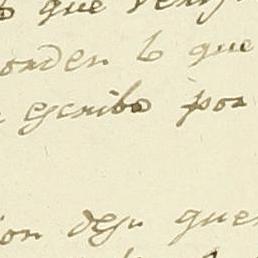 que
orden lo que
escribo por
ion desu que